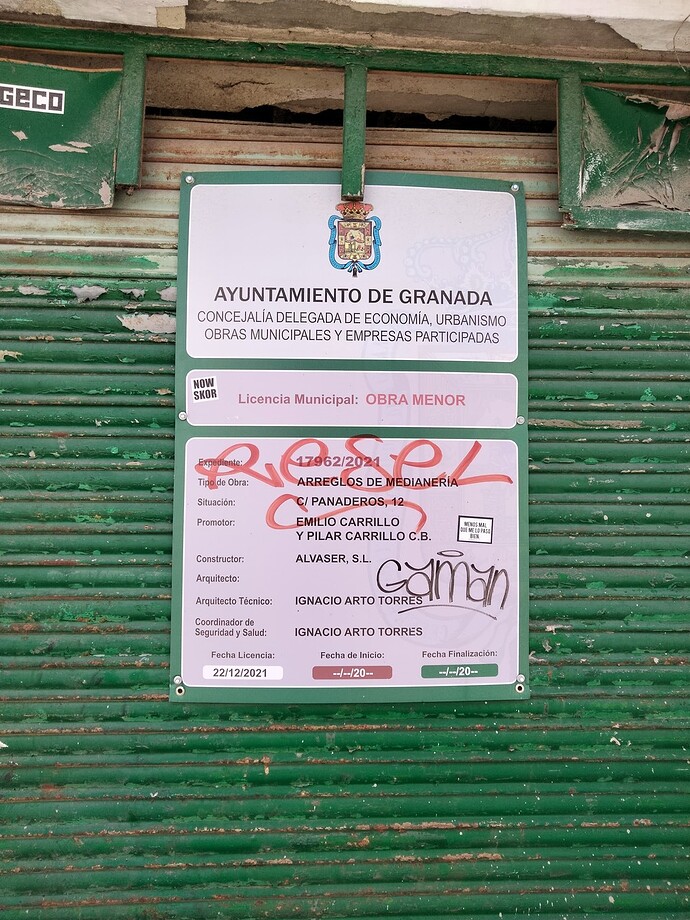 GECO
AYUNTAMIENTO DE GRANADA
CONCEJALÍA DELEGADA DE ECONOMÍA, URBANISMO
OBRAS MUNICIPALES Y EMPRESAS PARTICIPADAS
NOW
SKOR
Licencia Municipal: OBRA MENOR
Expediente: 17962/2021
Tipo de Obra: ARREGLOS DE MEDIANERÍA
Situación: C/ PANADEROS, 12
Promotor: EMILIO CARRILLO
Y PILAR CARRILLO C.B.
MENOS MAL
QUE ME LO PASO
BIEN
Constructor: ALVASER, S.L.
Arquitecto:
GAMAN
Arquitecto Técnico: IGNACIO ARTO TORRES
Coordinador de
Seguridad y Salud: IGNACIO ARTO TORRES
Fecha Licencia: Fecha de Inicio: Fecha Finalización:
22/12/2021 --/--/20-- --/--/20--